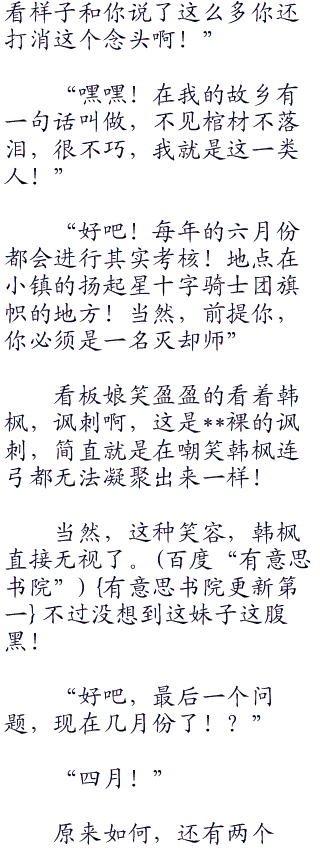 看样子和你说了这么多你还
打消这个念头啊！”
“嘿嘿！在我的故乡有
一句话叫做，不见棺材不落
泪，很不巧，我就是这一类
人！”
“好吧！每年的六月份
都会进行其实考核！地点在
小镇的扬起星十字骑士团旗
帜的地方！当然，前提你，
你必须是一名灭却师”
看板娘笑盈盈的看着韩
枫，讽刺啊，这是**裸的讽
刺，简直就是在嘲笑韩枫连
弓都无法凝聚出来一样！
当然，这种笑容，韩枫
直接无视了。（百度“有意思
书院”）{有意思书院更新第
一} 不过没想到这妹子这腹
黑！
“好吧，最后一个问
题，现在几月份了！？”
“四月！”
原来如何，还有两个